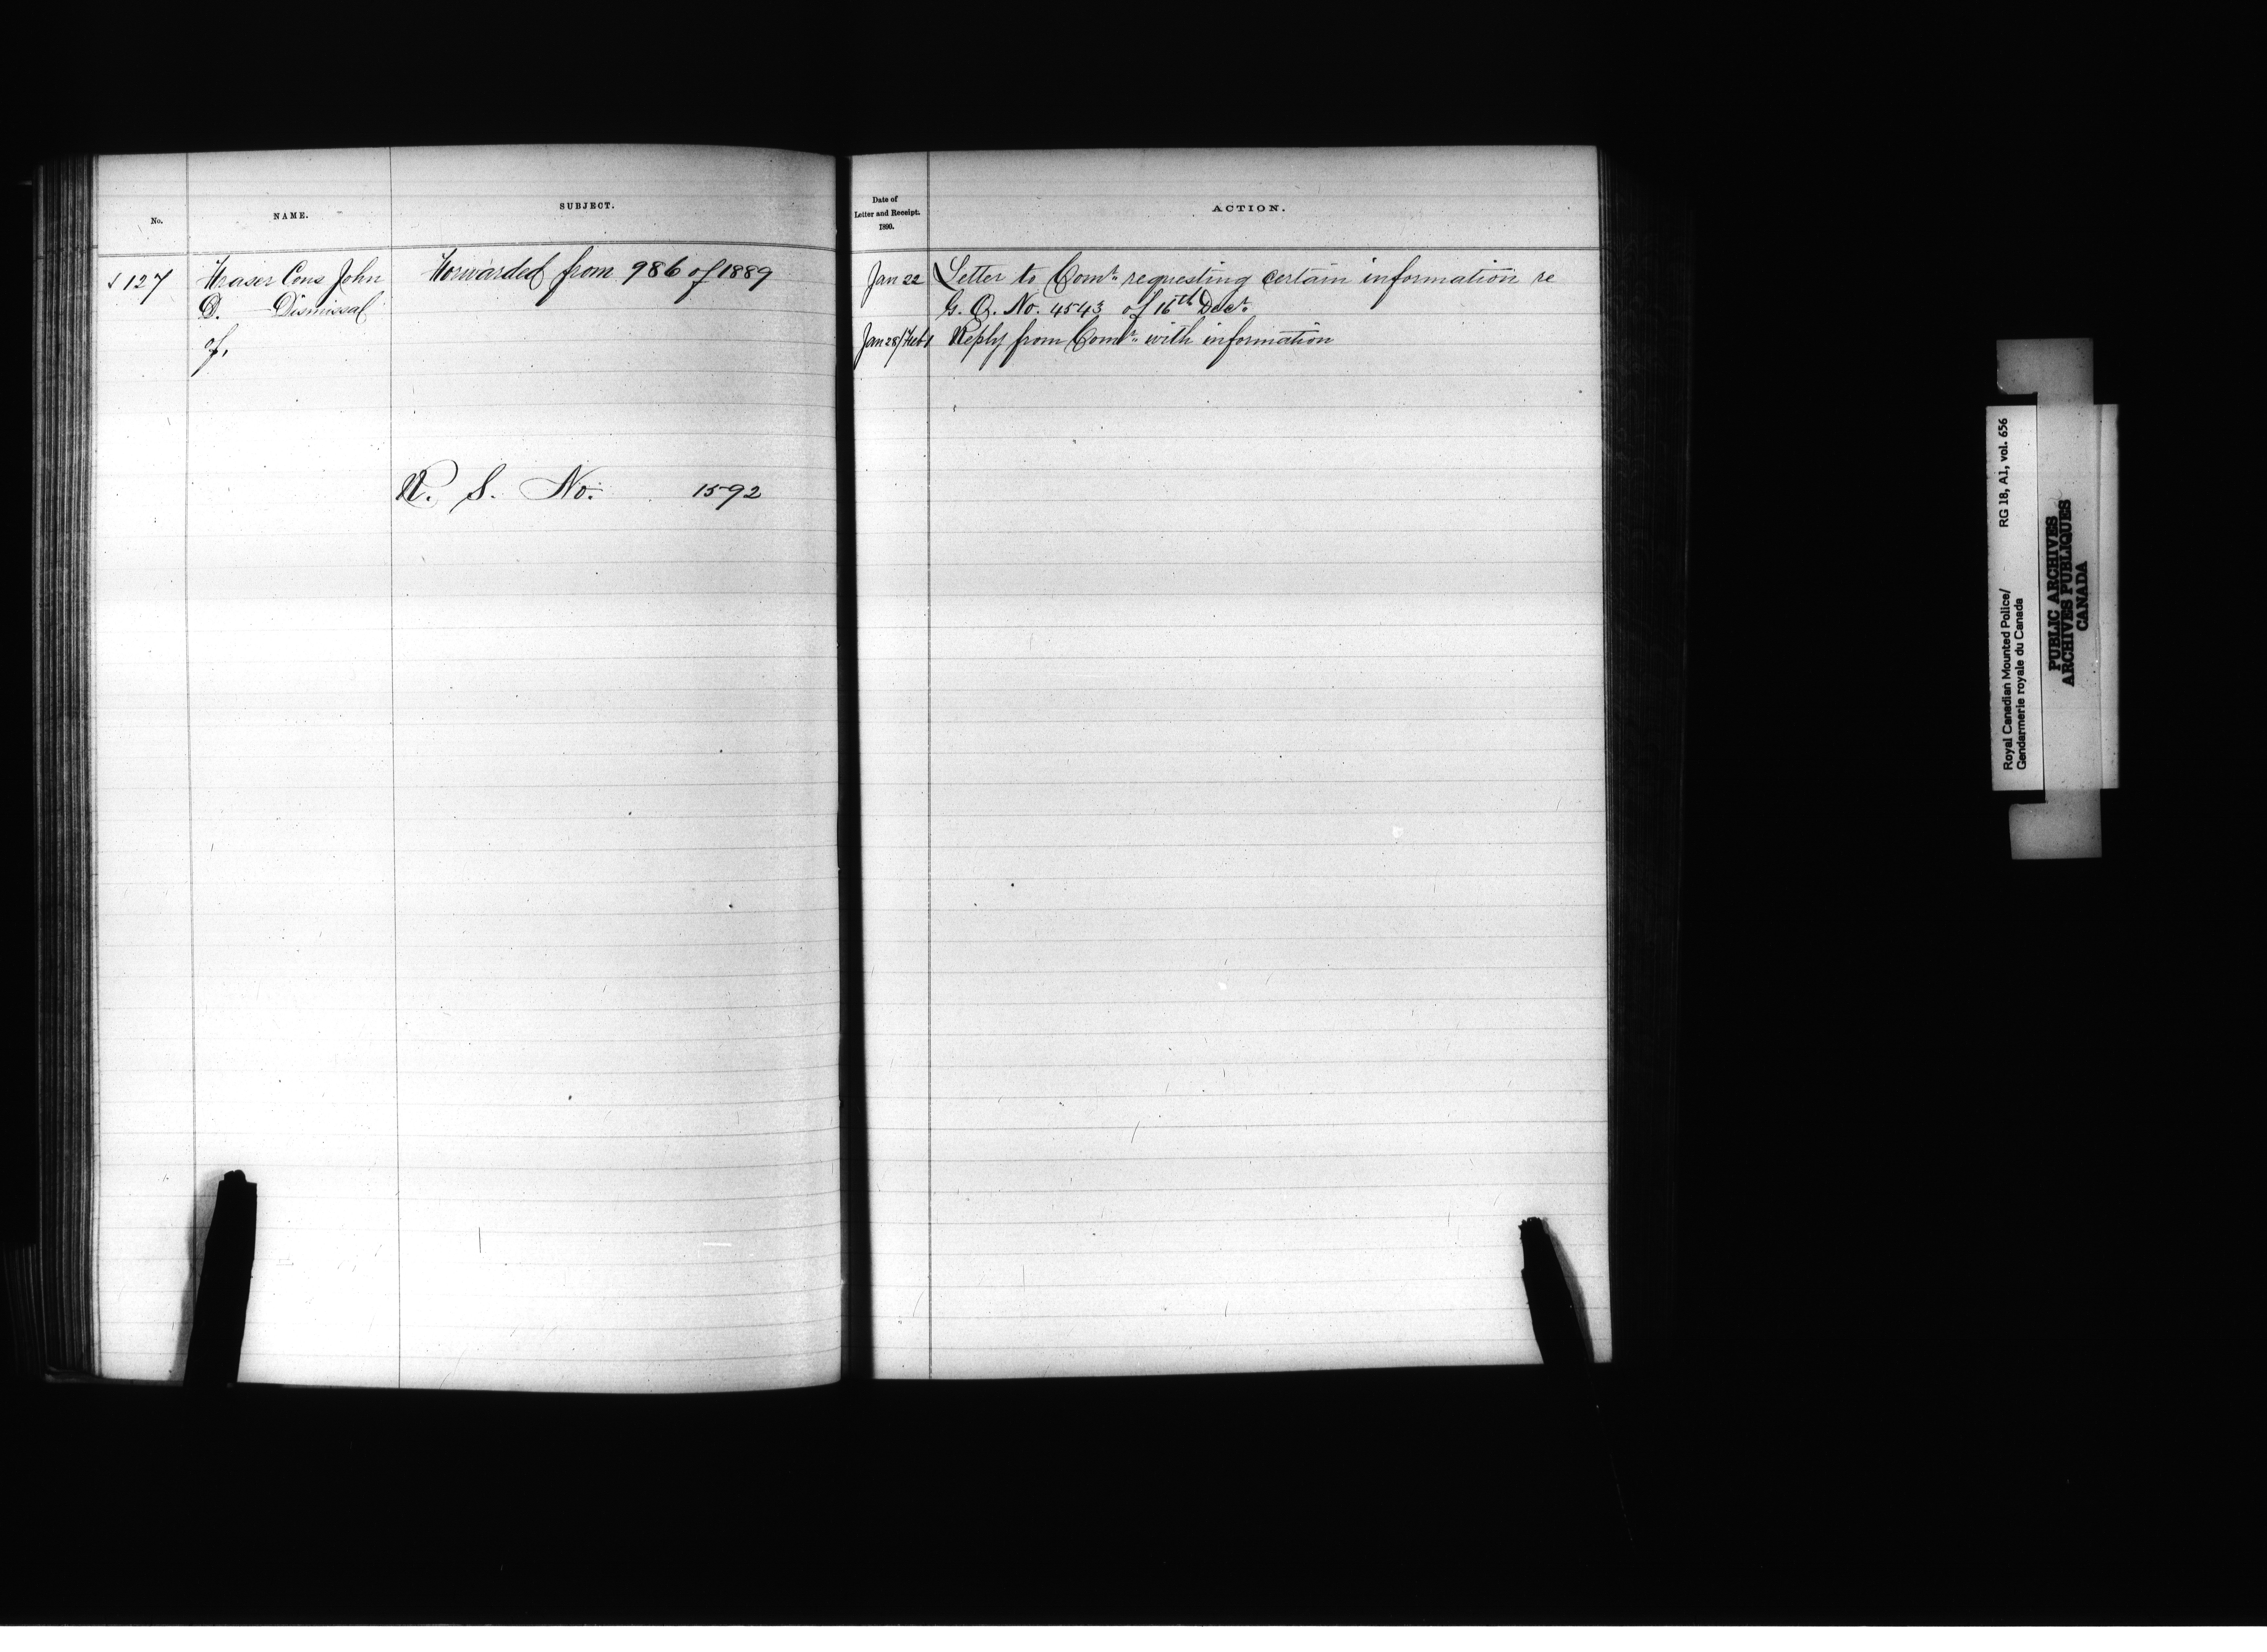 No.
NAME.
SUBJECT.
127
Fraser Cons John
D. Dismissal
of.
Forwarded from 986 of 1889
R. S. No. 1592
Date of
Letter and Receipt.
1890.
ACTION.
Jan 22 Letter to Comr. requesting certain information re
G. O. No. 4543 of 16th Decr.
Jan 28/Feb 1 Reply from Comr. with information
Royal Canadian Mounted Police/ RG 18, A1, vol. 656
Gendarmerie royale du Canada
PUBLIC ARCHIVES
ARCHIVES PUBLIQUES
CANADA